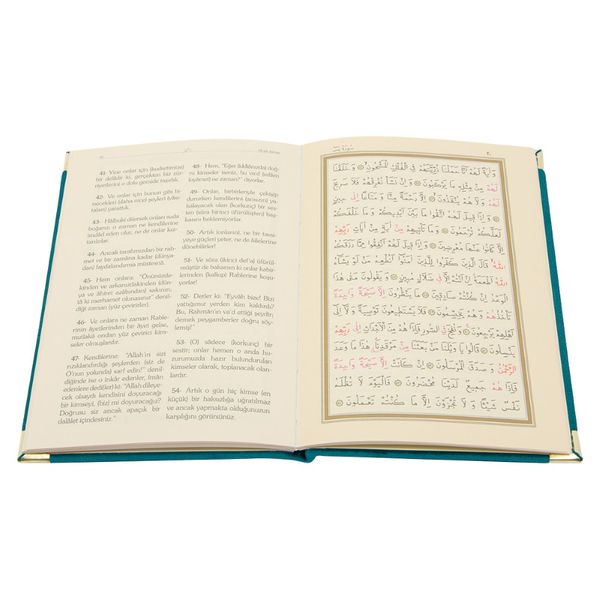 41- Yine onlar için (kudretimize) bir delildir ki, gerçekten biz zürriyetlerini o dolu gemide taşıdık.
42- Ve onlar için bunun gibi binecekleri (daha nice şeyleri)
yarattık.
43- Hâlbuki dilemek olsan onları suda
boğarız; o zaman ne kendilerine
imdâd eden olur, ne de onlar kurtarılırlar.
44- Ancak tarafımızdan bir rahmet ve bir zamana kadar (dünyadan) faydalandırma müstesnâ.
45- Hem onlara: "Önünüzdekinden ve arkanızdakinden
sakının;
tâ ki merhamet olunasınız" denildiği zaman (yüz çevirirler).
46- Ve onlara ne zaman Rablerinin âyetlerinden bir âyet gelse,
mutlaka ondan yüz çevirici kimseler olmuşlardır.
47- Kendilerine: "Allah'ın sizi
rızıklandırdığı şeylerden (siz de
O'nun yolunda) sarf edin!" denildiğinde ise o inkâr edenler, îmân
edenlere dediler ki: "Allah dileyecek olsaydı kendisini doyuracağı
bir kimseyi, (biz) mi doyuracağız?
Doğrusu siz ancak apaçık bir
dalâlet içindesiniz."
48- Hem, "Eğer (iddiânızda) doğru kimseler iseniz, bu vaad (edilen kıyâmet) ne zaman?" diyorlar.
49- Onlar, birbirleriyle çekişip
dururken kendilerini
yakalayacak olan (korkunç) bir sesten
başkasını
beklemiyorlar.
50- Artık (onlar) ne bir tavsiyeye güçleri yeter, ne de âilelerine
dönebilirler!
51- Ve sûra (ikinci def'a) üfürülmüştür de bakarsın ki onlar kabirlerinden (kalkıp) Rablerine koşuyorlar.
52- Derler ki: "Eyvâh bize! Bizi
yattığımız yerden kim kaldırdı?
Bu, Rahmân'ın va'd ettiği şeydir;
demek peygamberler doğru söylemiş!"
53- (O) sâdece (korkunç) bir
sestir; onlar hemen o anda huzurumuzda hazır bulundurulan
kimseler olarak, toplanacak olanlardır.
54- Artık o gün hiç kimse (en
küçük) bir haksızlığa uğratılmaz
ve ancak yapmakta olduğunuzun
karşılığını görürsünüz.
وَاٰيَةٌ لَهُمْ اَنَّا حَمَلْنَا ذُرِّيَّتَهُمْ فِي الْفُلْكِ الْمَشْحُونِ وَخَلَقْنَا
لَهُمْ مِنْ مِثْلِهِ مَا يَرْكَبُونَ وَاِنْ نَشَأْ نُغْرِقْهُمْ فَلَا صَرِيخَ
لَهُمْ وَلَا هُمْ يُنْقَذُونَ اِلَّا رَحْمَةً مِنَّا وَمَتَاعًا اِلٰى حِينٍ
وَاِذَا قِيلَ لَهُمُ اتَّقُوا مَا بَيْنَ اَيْدِيكُمْ وَمَا خَلْفَكُمْ
لَعَلَّكُمْ تُرْحَمُونَ وَمَا تَأْتِيهِمْ مِنْ اٰيَةٍ مِنْ اٰيَاتِ رَبِّهِمْ
اِلَّا كَانُوا عَنْهَا مُعْرِضِينَ وَاِذَا قِيلَ لَهُمْ اَنْفِقُوا مِمَّا رَزَقَكُمُ
اللّٰهُ قَالَ الَّذِينَ كَفَرُوا لِلَّذِينَ اٰمَنُوا اَنُطْعِمُ مَنْ لَوْ يَشَاءُ
اللّٰهُ اَطْعَمَهُ اِنْ اَنْتُمْ اِلَّا فِي ضَلَالٍ مُبِينٍ وَيَقُولُونَ مَتٰى هٰذَا
الْوَعْدُ اِنْ كُنْتُمْ صَادِقِينَ مَا يَنْظُرُونَ اِلَّا صَيْحَةً وَاحِدَةً
تَأْخُذُهُمْ وَهُمْ يَخِصِّمُونَ فَلَا يَسْتَطِيعُونَ تَوْصِيَةً وَلَا اِلٰى
اَهْلِهِمْ يَرْجِعُونَ وَنُفِخَ فِي الصُّورِ فَاِذَا هُمْ مِنَ الْاَجْدَاثِ اِلٰى رَبِّهِمْ
يَنْسِلُونَ قَالُوا يَا وَيْلَنَا مَنْ بَعَثَنَا مِنْ مَرْقَدِنَا هٰذَا مَا وَعَدَ
الرَّحْمٰنُ وَصَدَقَ الْمُرْسَلُونَ اِنْ كَانَتْ اِلَّا صَيْحَةً وَاحِدَةً
فَاِذَا هُمْ جَمِيعٌ لَدَيْنَا مُحْضَرُونَ فَالْيَوْمَ لَا تُظْلَمُ
نَفْسٌ شَيْئًا وَلَا تُجْزَوْنَ اِلَّا مَا كُنْتُمْ تَعْمَلُونَ